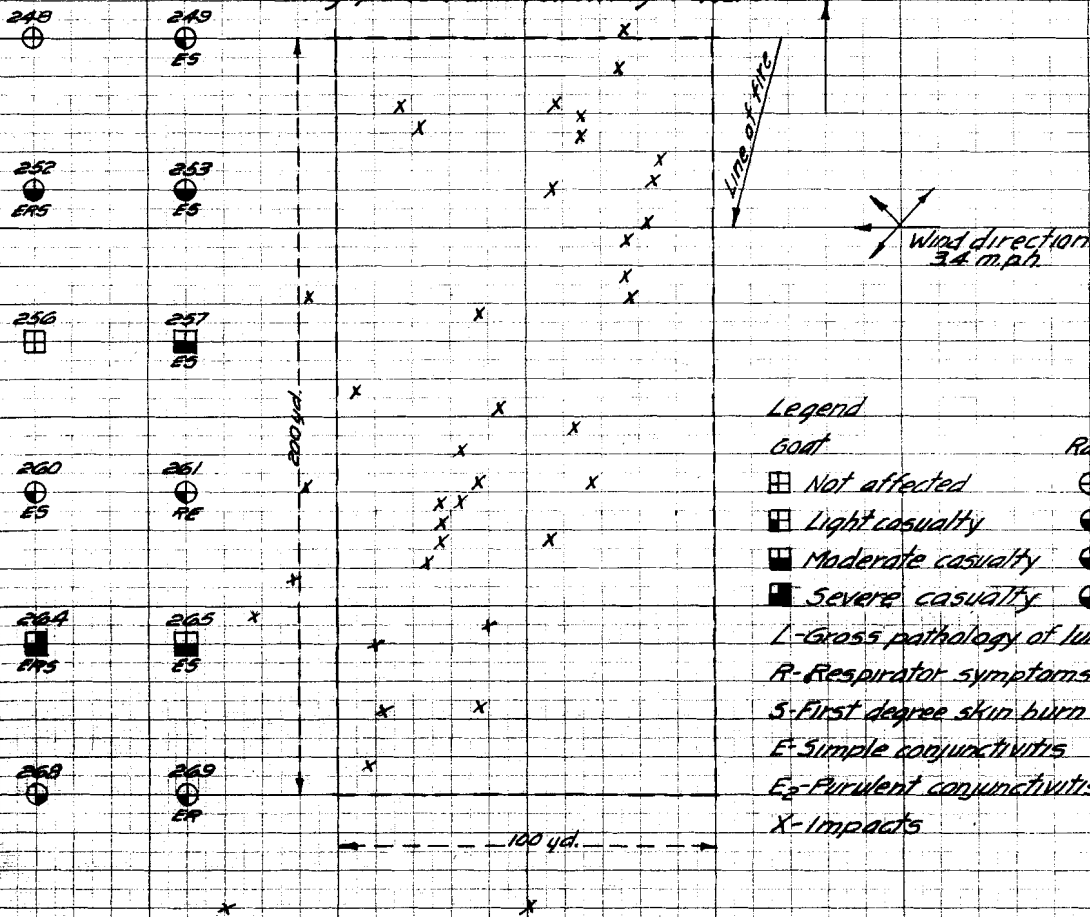 248
249
ES
252
253
ERS
ES
256
257
ES
260
261
ES
RE
264
265
ERS
ES
268
269
ER
200 yd.
100 yd.
Line of fire
Wind direction
3.4 m.p.h.
Legend
Goat
Not affected
Light casualty
Moderate casualty
Severe casualty
L-Gross pathology of
R-Respirator symptoms
S-First degree skin burn
E-Simple conjunctivitis
E2-Purulent conjunctivitis
X-Impacts